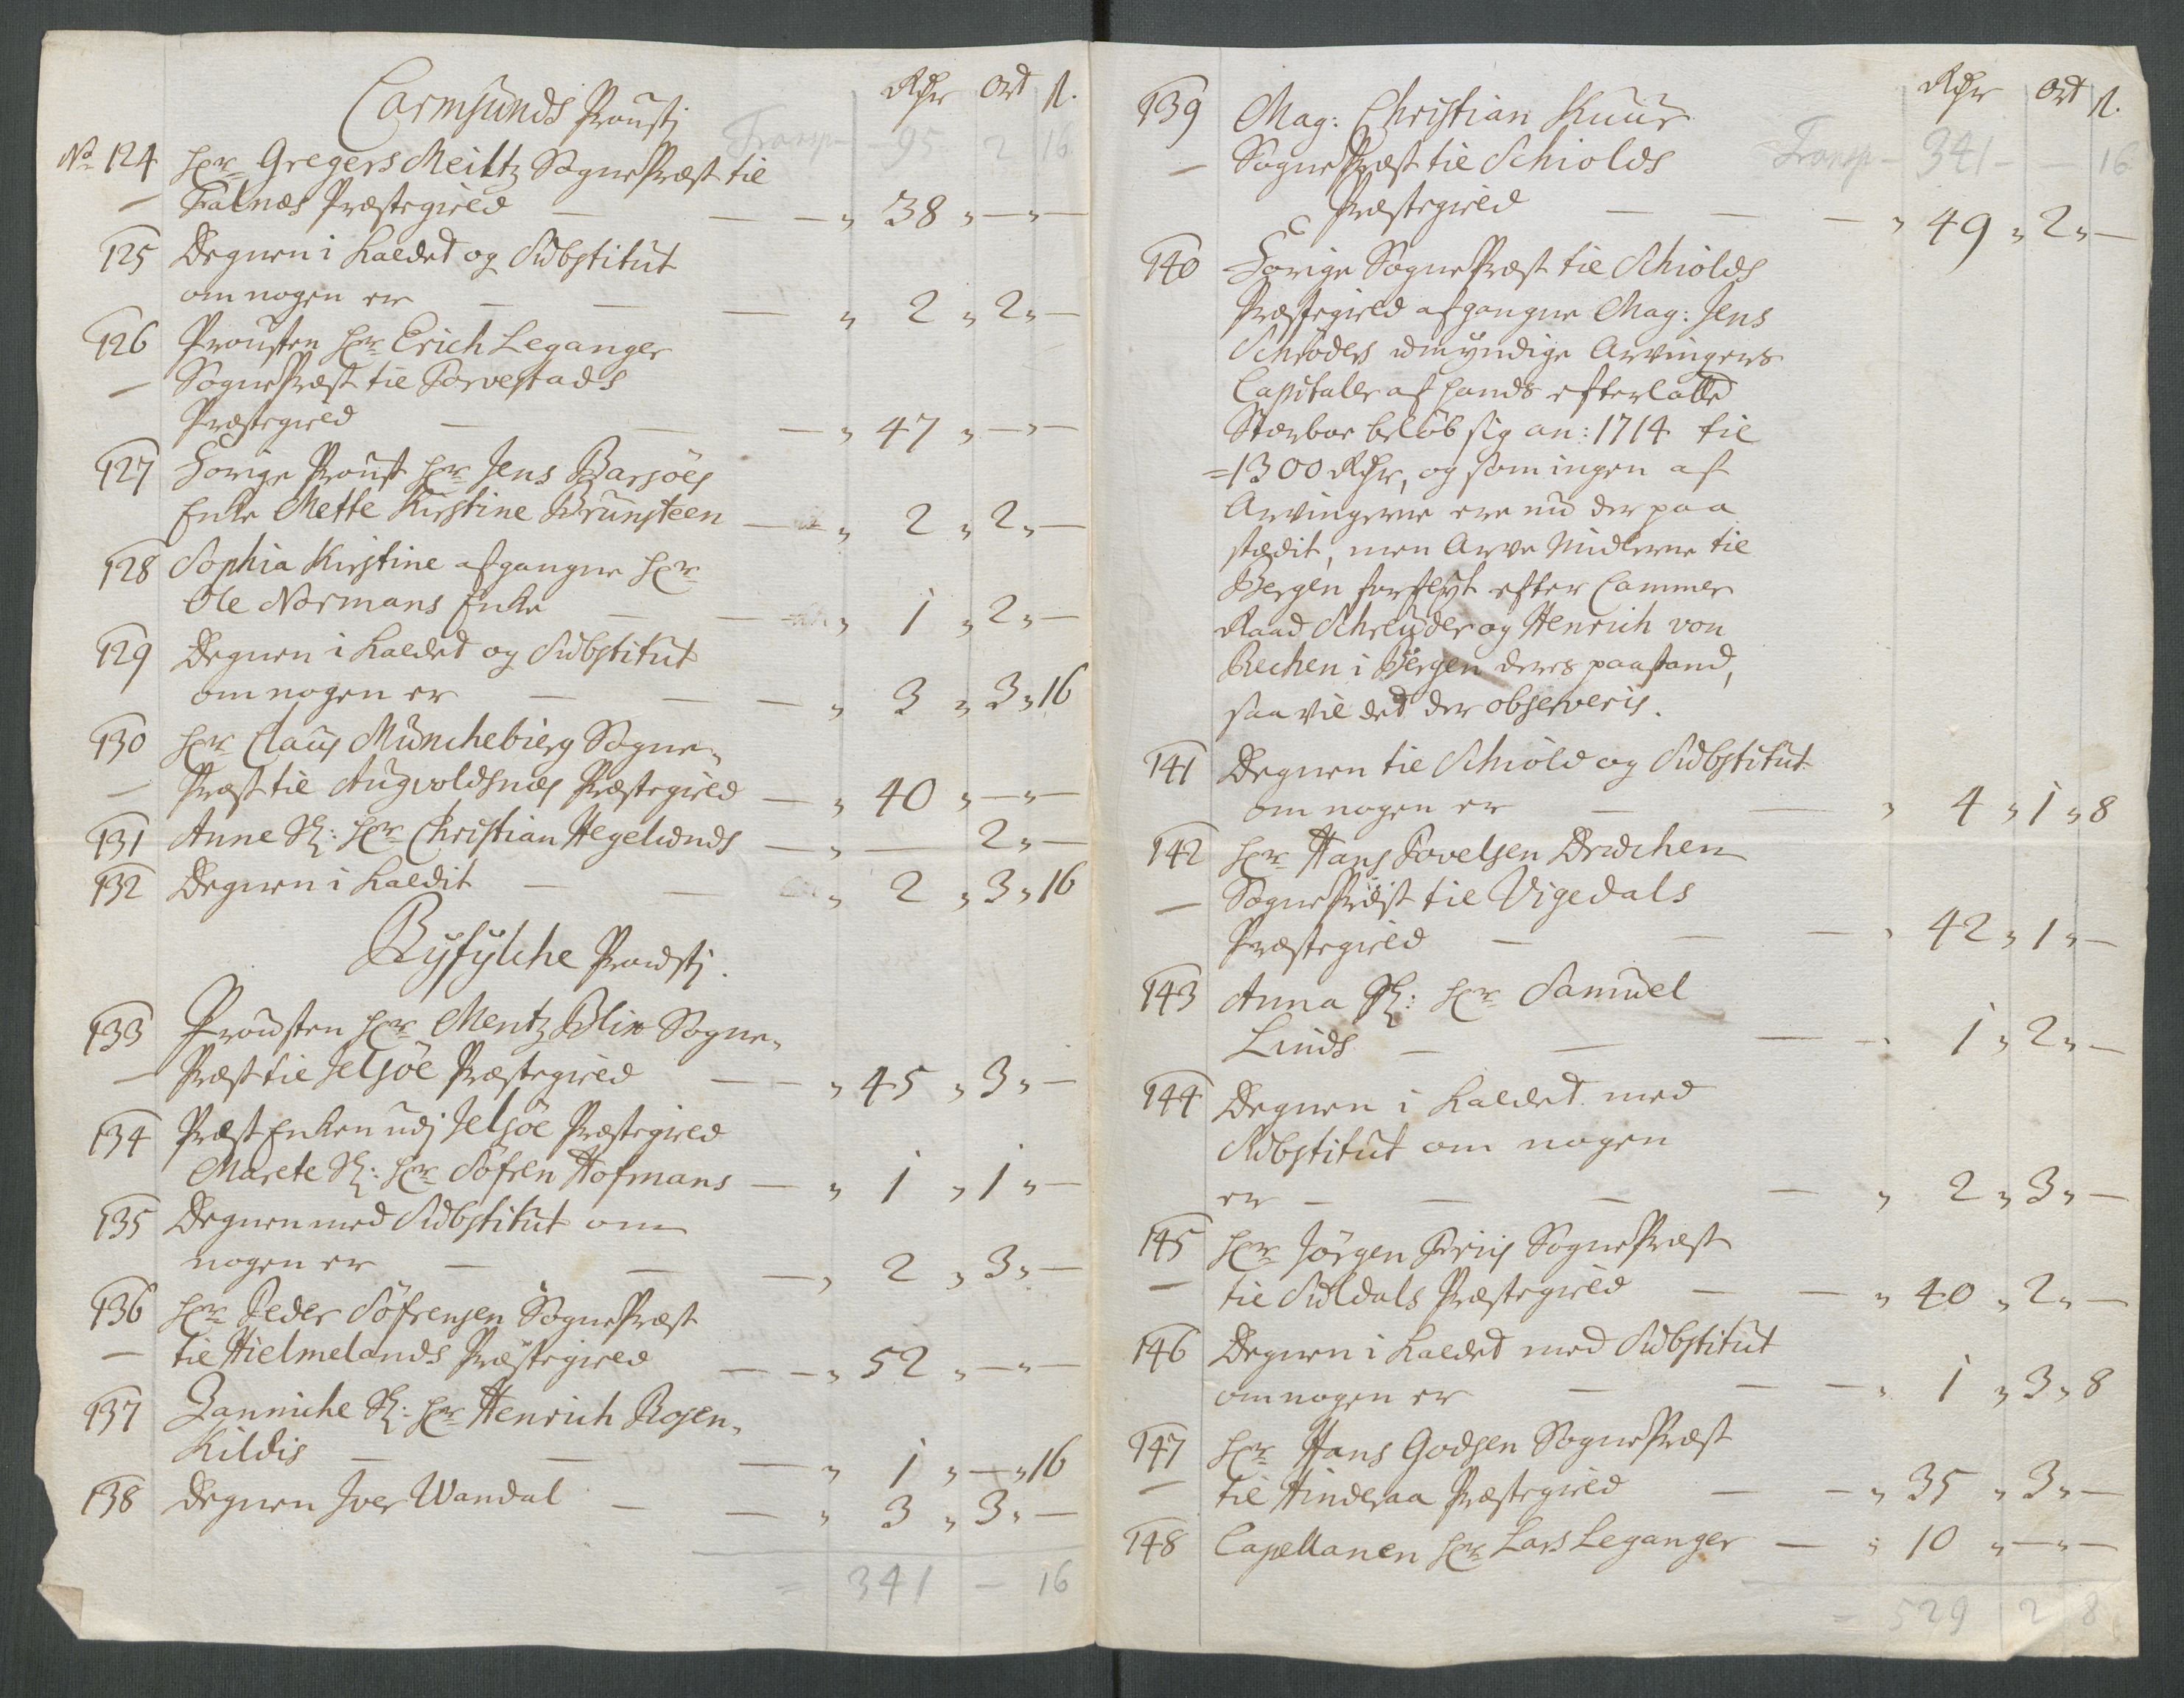 Carmsunds Prousti
Rdr Ort ſ.
Transp 95 2 16
No 124 Hr Gregers Meiltz SognePræst til
Falnæs Præstegield — — — „ 38 „ — „ —
125 Degnen i Kaldet og Substitut
om nogen er — — — „ 2 „ 2 „ —
126 Prousten Hr Erich Leganger
SognePræst til Torvestads
Præstegield — — — „ 47 „ — „ —
127 Forige Proust Hr Jens Barsöes
Enke Mette Kirstine Brunsteen — „ 2 „ 2 „ —
128 Sophia Kirstine afgangne Hr
Ole Normans Enke — — „ 1 „ 2 „ —
129 Degnen i Kaldet og Substitut
om nogen er — — — „ 3 „ 3 „ 16
130 Hr Claus Münchebierg Sogne-
Præst til Augvoldsnæs Præstegield — „ 40 „ — „ —
131 Anne Sl: Hr Christian Hegelunds — „ — 2 „ —
132 Degnen i Kaldit — — „ 2 „ 3 „ 16
Ryfylche Proustj.
133 Prousten Hr Mentz Blix Sogne-
Præst til Jelsöe Præstegield — — „ 45 „ 3 „ —
134 Præst Enken udj Jelsöe Præstegield
Marete Sl: Hr Söfren Hofmans — „ 1 „ 1 „ —
135 Degnen med Substitut om
nogen er — — — „ 2 „ 3 „ —
136 Hr Peder Söfrensen SognePræst
til Hielmelands Præstegield — — „ 52 „ — „ —
137 Janniche Sl: Hr Henrich Rosen-
Kildis — — — „ 1 „ — „ 16
138 Degnen Iver Wandal — — „ 3 „ 3 „ —
= 341 — 16
Rdr Ort ſ.
139 Mag: Christian Kuur
SognePræst til Schiolds Transp — 341 — 16
Præstegield — — — „ 49 „ 2 „ —
140 Forige SognePræst til Schiolds
Præstegield afgangne Mag: Jens
Schröders umyndige Arvingers
Capitaler af hands efterlatte
Sterboe beløb sig an: 1714 til
=1300 Rdr, og som ingen af
Arvingerne ere nu der paa
stædit, men Arve Midlerne til
Bergen forflyt efter Cammer
Raad Schreuder og Henrich von
Rechen i Bergen deres paastand,
saa vil det der observeris.
141 Degnen til Schiold og Substitut
om nogen er — — „ 4 „ 1 „ 8
142 Hr Hans Povelsen Druchen
SognePræst til Vigedals
Præstegield — — — „ 42 „ 1 „ —
143 Anna Sl: Hr Samuel
Linds — — — „ 1 „ 2 „ —
144 Degnen i Kaldet med
Substitut om nogen
er — — — — „ 2 „ 3 „ —
145 Hr Jörgen Friis SognePræst
til Suldals Præstegield — — „ 40 „ 2 „ —
146 Degnen i Kaldet med Substitut
om nogen er — — — „ 1 „ 3 „ 8
147 Hr Hans Godsen SognePræst
til Hinderaa Præstegield — — „ 35 „ 3 „ —
148 Capellanen Hr Lars Leganger — „ 10 „ — „ —
= 529 2 8